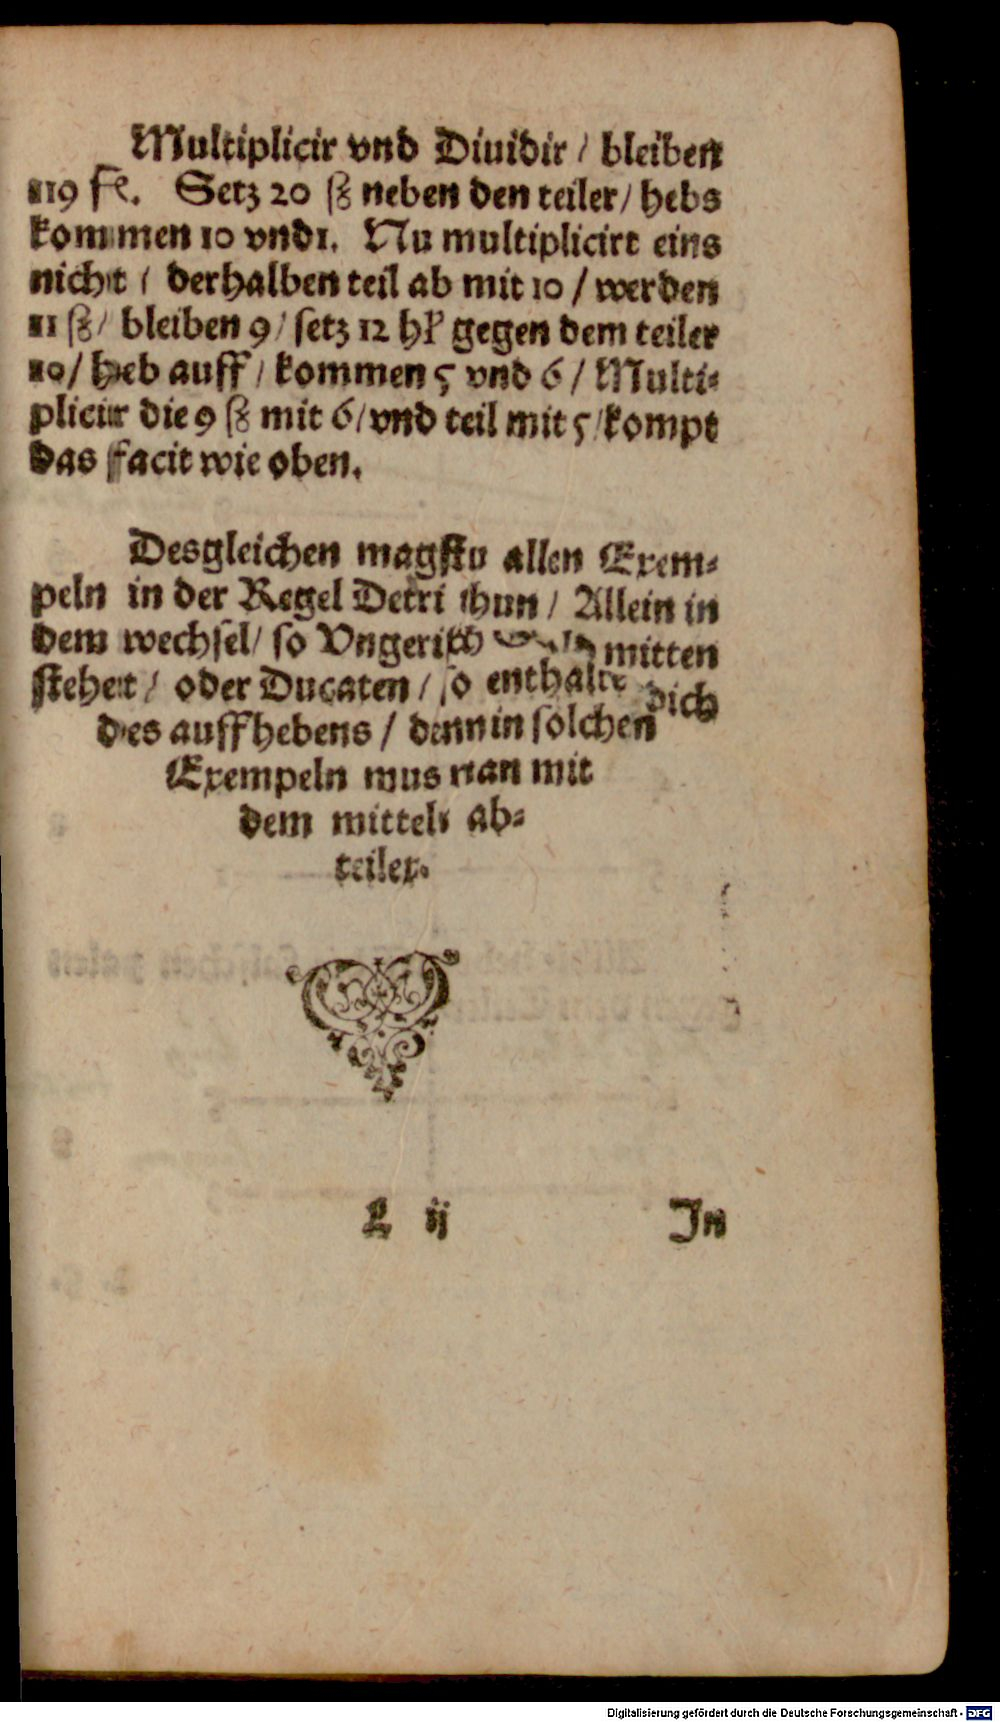 Multiplicir vnd Diuidir / bleiben
119 fl. Setz 20 ß neben den teiler / hebs
kommen 10 vnd 1. Nu multiplicirt eins
nicht / derhalben teil ab mit 10 / werden
11 ß / bleiben 9 / setz 12 hl gegen dem teiler
10 / heb auff / kommen 5 vnd 6 / Multi-
plicir die 9 ß mit 6 / vnd teil mit 5 / kompt
das facit wie oben.
Desgleichen magstu allen Exem-
peln in der Regel Detri thun / Allein in
dem wechsel / so Vngerisch mitten
stehet / oder Ducaten / so enthalte dich
des auffhebens / denn in solchen
Exempeln mus man mit
dem mitteln ab-
teilen.
L ij In
Digitalisierung gefördert durch die Deutsche Forschungsgemeinschaft - DFG